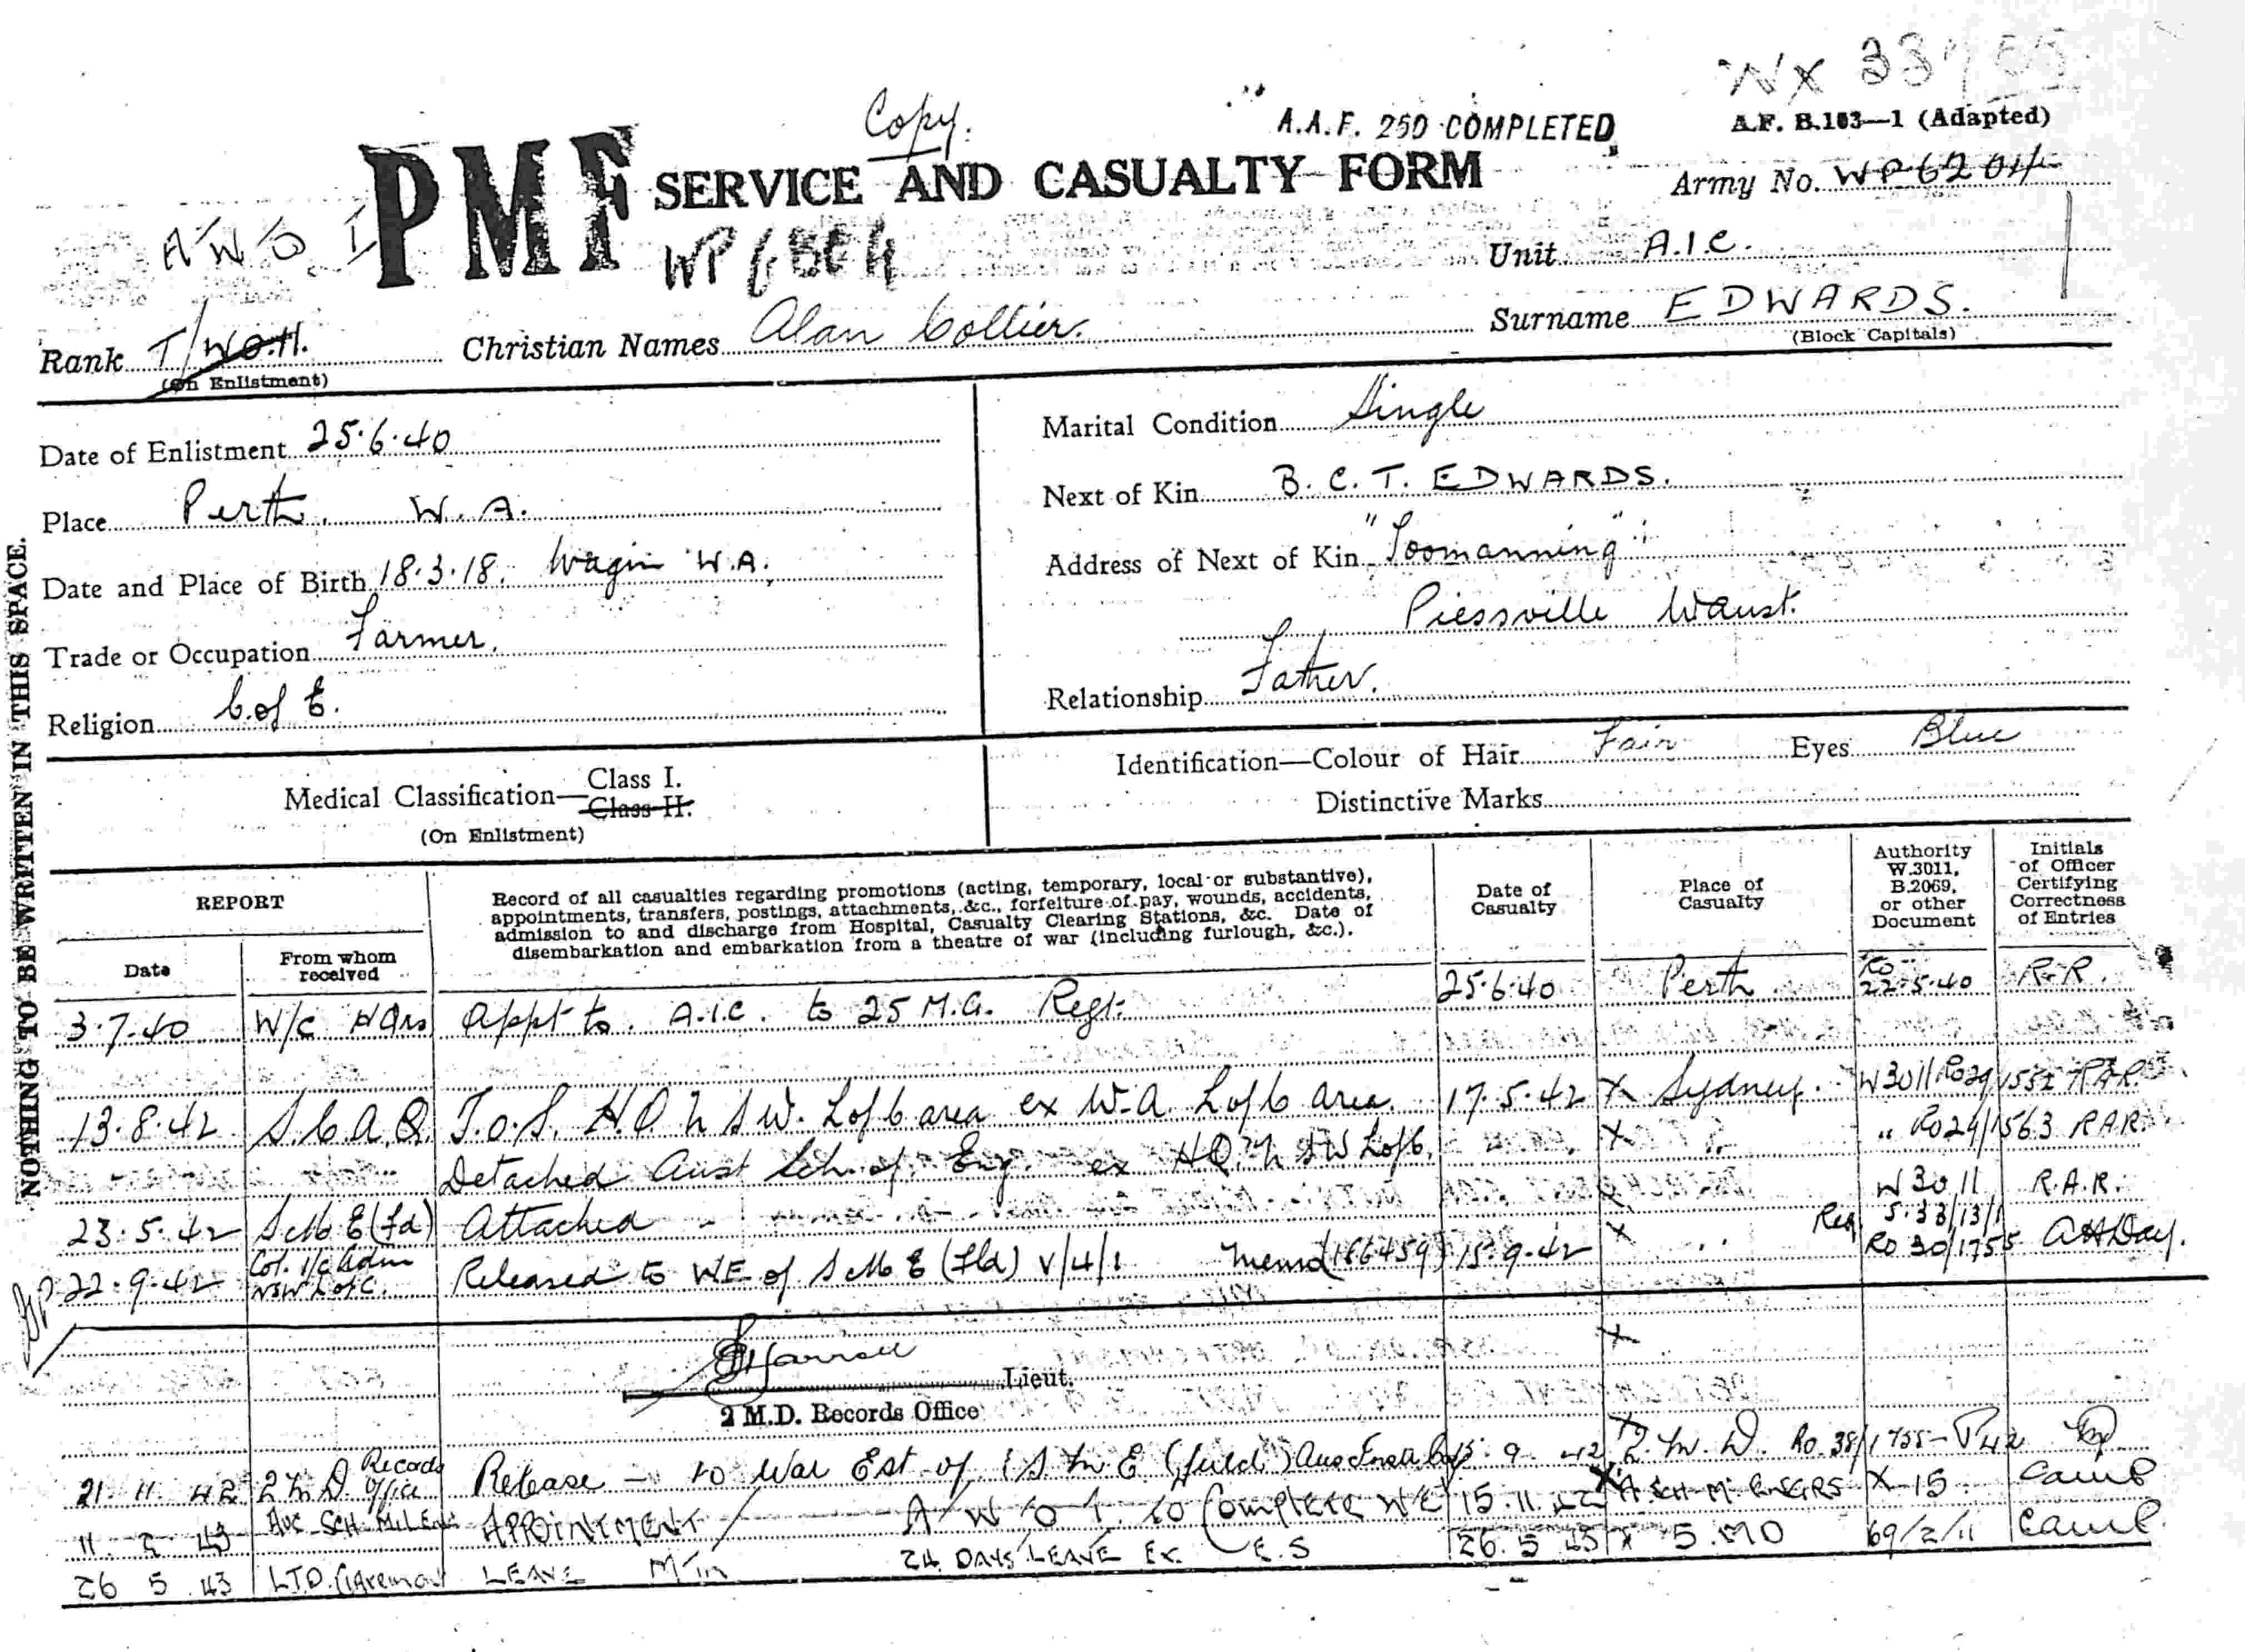 Copy.
A.A.F. 250 COMPLETED
A.F. B.103—1 (Adapted)
PMF SERVICE AND CASUALTY FORM
Army No. WP6204
A W O I
Unit A.I.C.
Rank T/W.O.II. Christian Names Alan Collier. Surname EDWARDS.
(On Enlistment) (Block Capitals)
Date of Enlistment 25.6.40
Place Perth. W.A.
Date and Place of Birth 18.3.18. Wagin W.A.
Trade or Occupation Farmer.
Religion C. of E.
Marital Condition Single
Next of Kin B. C. T. EDWARDS.
Address of Next of Kin "Toomanning"
Piessville W Aust.
Relationship Father.
Medical Classification— Class I.
Class II.
(On Enlistment)
Identification—Colour of Hair Fair Eyes Blue
Distinctive Marks
NOTHING TO BE WRITTEN IN THIS SPACE.
REPORT
Date
From whom received
Record of all casualties regarding promotions (acting, temporary, local or substantive),
appointments, transfers, postings, attachments, &c., forfeiture of pay, wounds, accidents,
admission to and discharge from Hospital, Casualty Clearing Stations, &c. Date of
disembarkation and embarkation from a theatre of war (including furlough, &c.).
Date of Casualty
Place of Casualty
Authority W.3011, B.2069, or other Document
Initials of Officer Certifying Correctness of Entries
3.7.40 W/C HQrs Appt to A.I.C. to 25 M.G. Regt. 25.6.40 Perth. RO 22.5.40 R.R.
13.8.42 T.O.S. H.Q. N S W. L of C area ex W.A. L of C Area. 17.5.42 X Sydney. W3011 RO29/1552 RAR.
Detached Aust Sch. of Eng. ex HQ. N S W L of C. X " " RO29/1563 RAR.
23.5.42 S M E (Fd) Attached W3011 R.A.R.
22.9.42 Col. i/c Adm NSW L of C. Released to WE of S M E (Fld) V/4/1 Memo (166459) 15.9.42 X " RO 30/1755
Lieut.
2 M.D. Records Office
21 11 42 2 M D Records Office Release — to War Est of S M E (field) 15.9.42 X 2. M. D.
APPOINTMENT A/W O I. to Complete WE 15.11.42 X-15
26 5 43 LEAVE 24 DAYS LEAVE 26.5.43 X 69/2/11